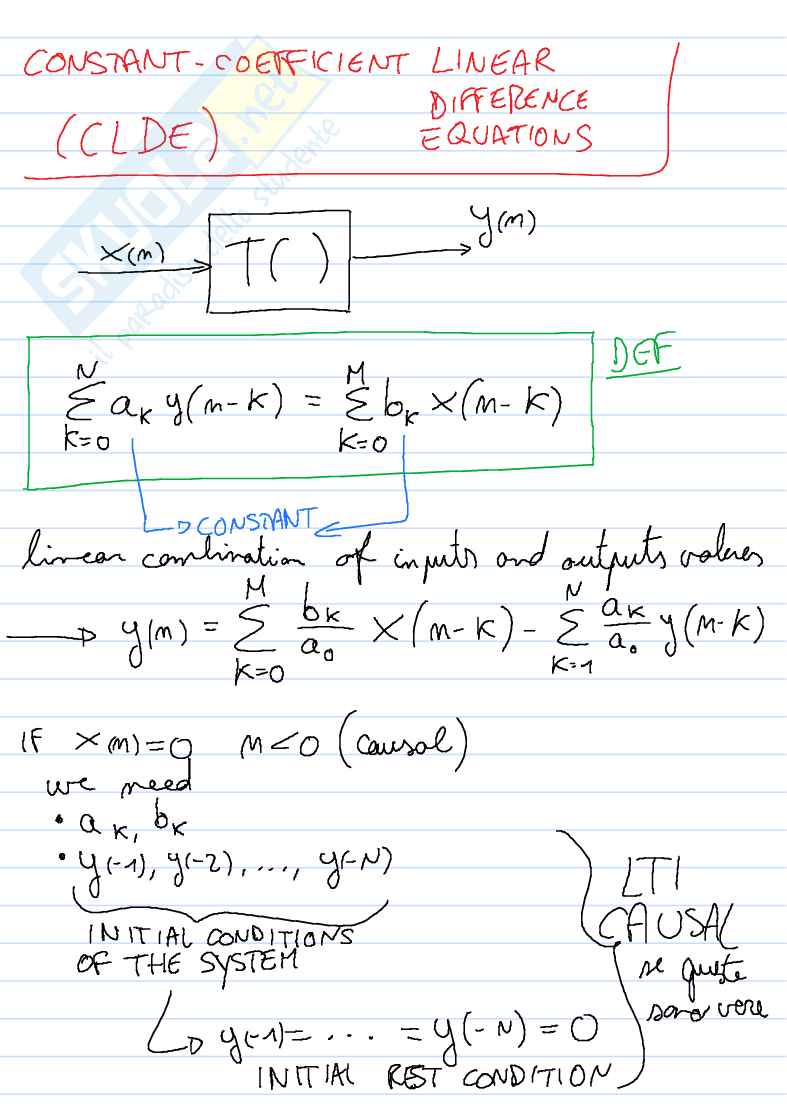 CONSTANT-COEFFICIENT LINEAR
DIFFERENCE
(CLDE) EQUATIONS
SKUOLA.net
il paradiso dello studente
x(n) T( ) y(n)
DEF
∑_{k=0}^{N} a_k y(n-k) = ∑_{k=0}^{M} b_k x(n-k)
CONSTANT
linear combination of inputs and outputs values
→ y(n) = ∑_{k=0}^{M} b_k/a_0 x(n-k) - ∑_{k=1}^{N} a_k/a_0 y(n-k)
IF x(n)=0 n<0 (causal)
we need
• a_k, b_k
• y(-1), y(-2), ..., y(-N)
INITIAL CONDITIONS
OF THE SYSTEM
→ y(-1)= ... = y(-N) = 0
INITIAL REST CONDITION
LTI
CAUSAL
se queste
sono vere